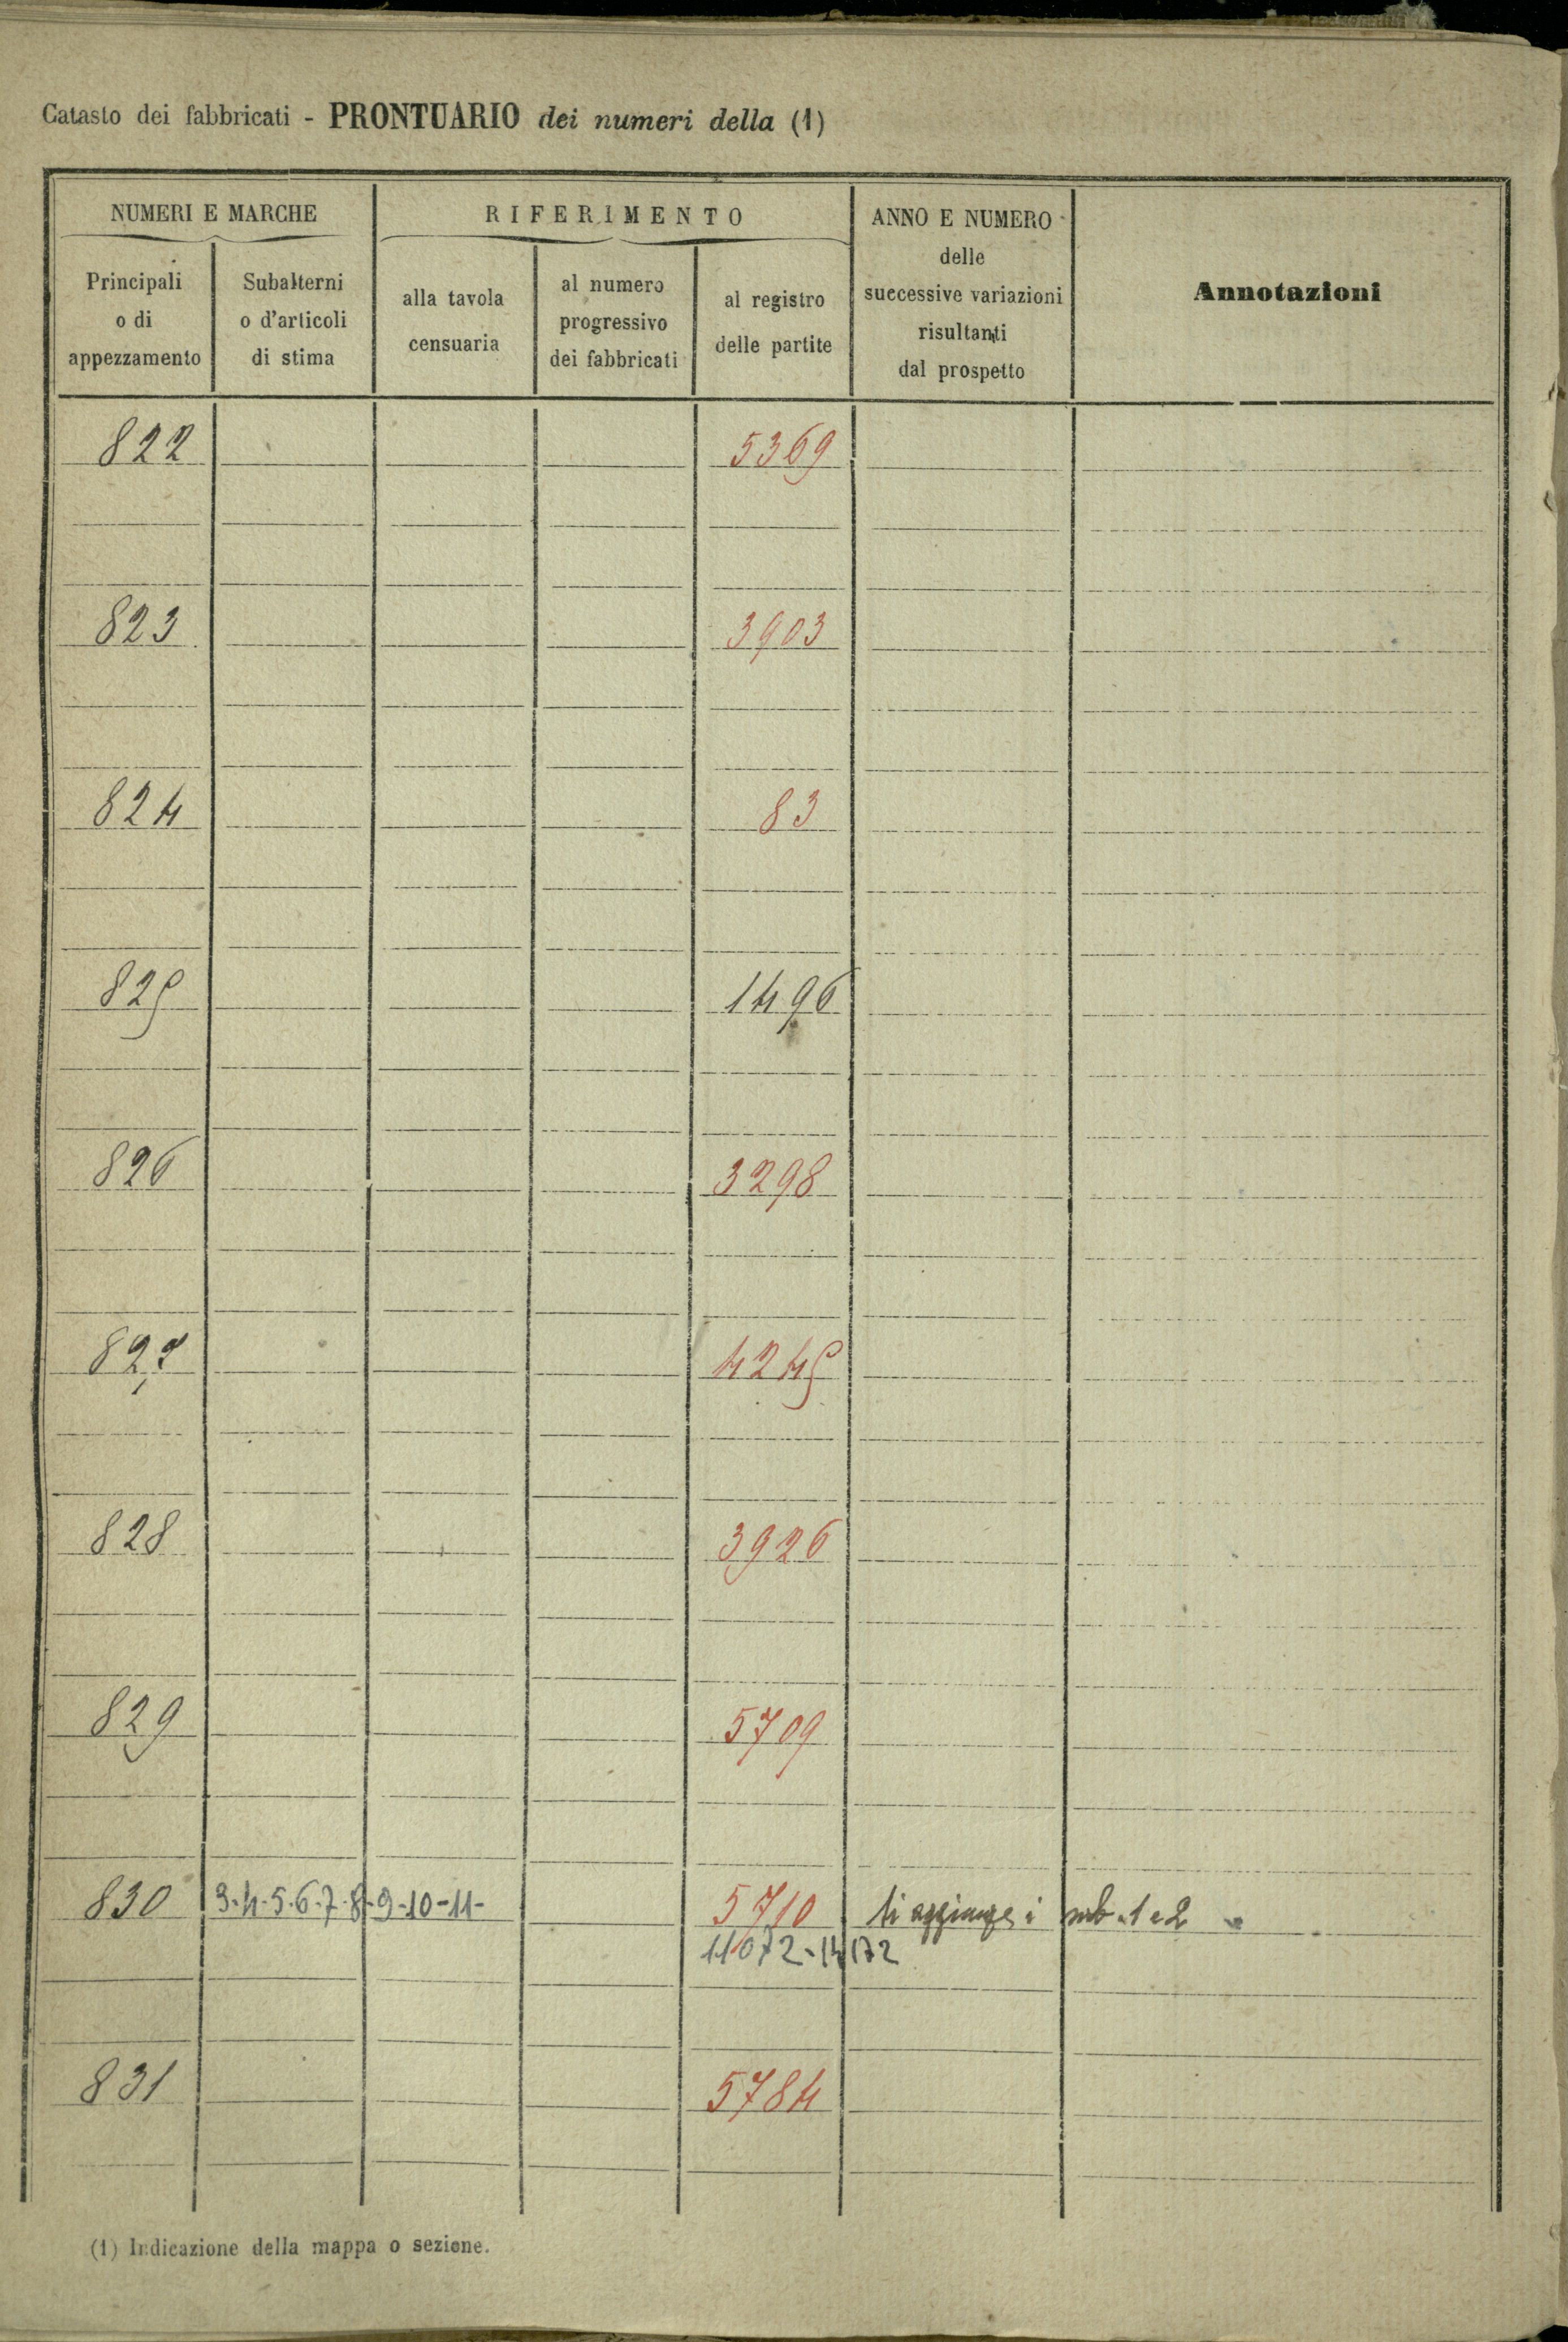 Catasto dei fabbricati - PRONTUARIO dei numeri della (1)
NUMERI E MARCHE
Principali
o di
appezzamento
Subalterni
o d'articoli
di stima
RIFERIMENTO
alla tavola
censuaria
al numero
progressivo
dei fabbricati
al registro
delle partite
ANNO E NUMERO
delle
successive variazioni
risultanti
dal prospetto
Annotazioni
822 5369
823 3903
824 83
825 1496
826 3298
827 4245
828 3926
829 5709
830 3-4-5-6-7-8-9-10-11- 5710 si aggiunge i sub. 1 e 2
11072-14172
831 5784
(1) Indicazione della mappa o sezione.